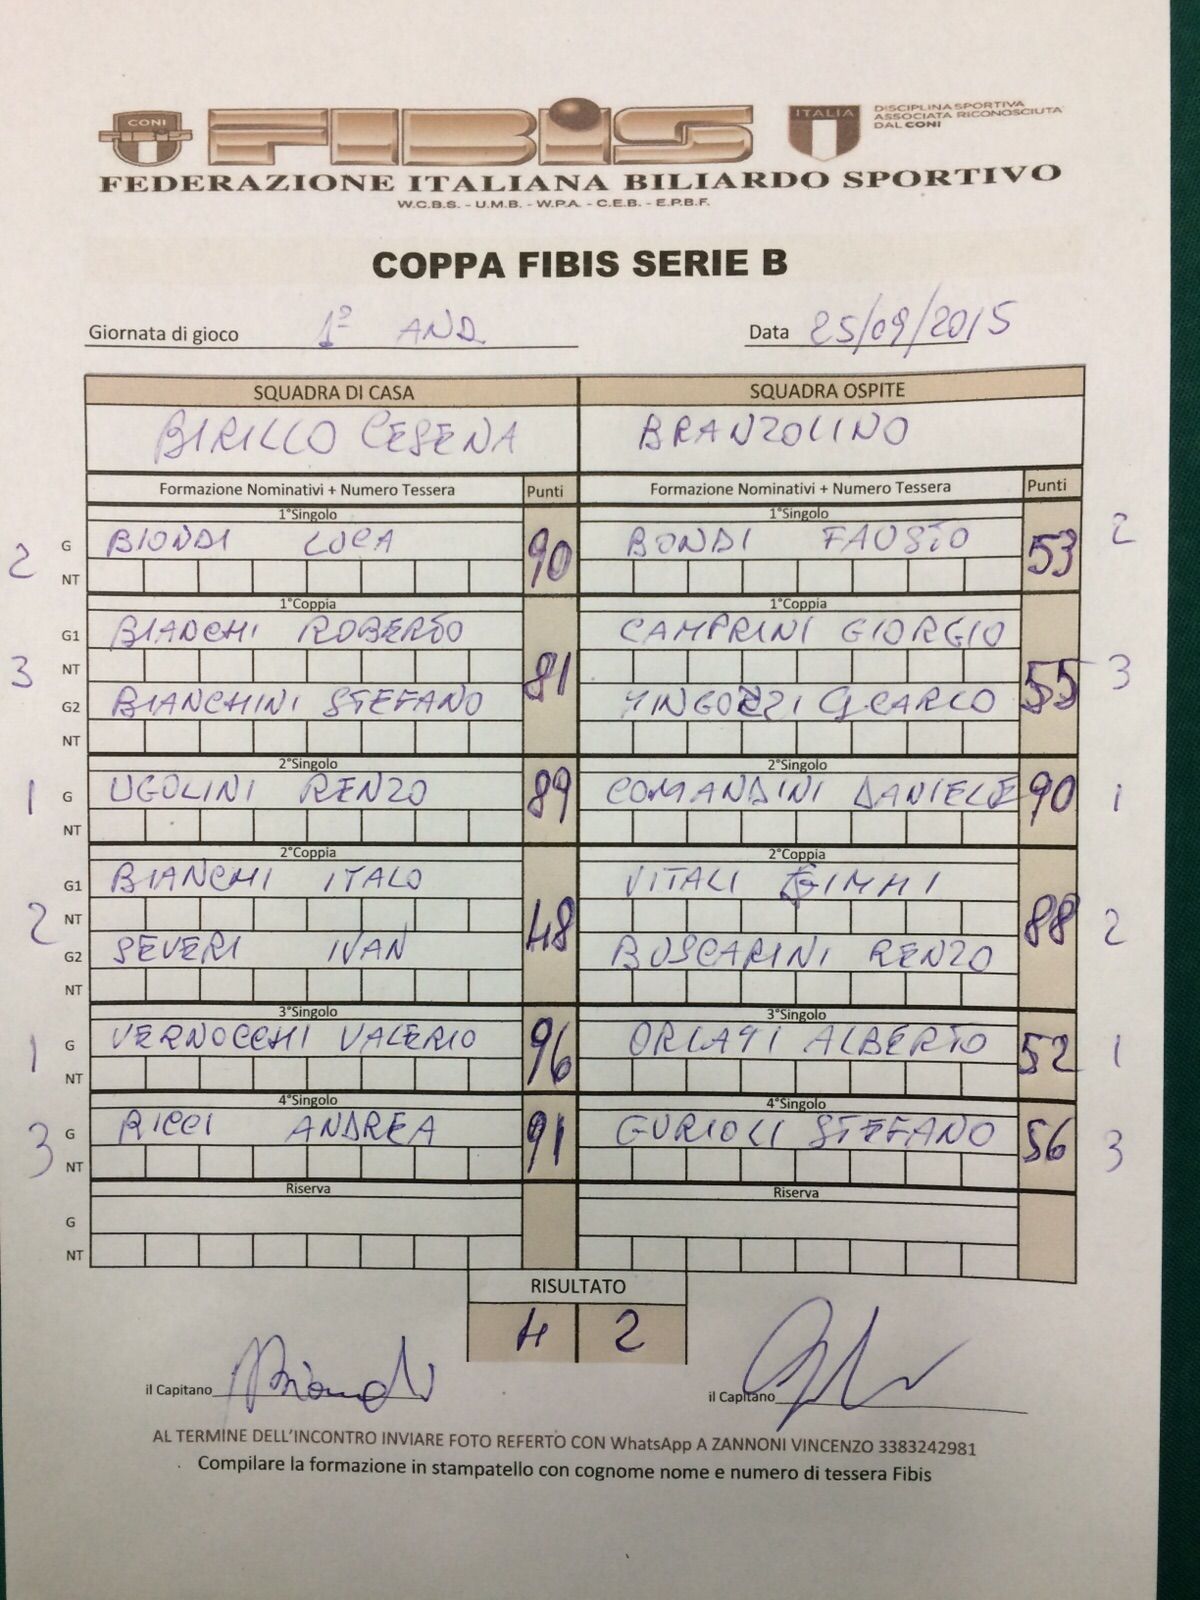 CONI
FIBIS
ITALIA
DISCIPLINA SPORTIVA
ASSOCIATA RICONOSCIUTA
DAL CONI
FEDERAZIONE ITALIANA BILIARDO SPORTIVO
W.C.B.S. - U.M.B. - W.P.A. - C.E.B. - E.P.B.F.
COPPA FIBIS SERIE B
Giornata di gioco 1ª AND. Data 25/09/2015
SQUADRA DI CASA SQUADRA OSPITE
BIRILLO CESENA BRANZOLINO
Formazione Nominativi + Numero Tessera Punti Formazione Nominativi + Numero Tessera Punti
1°Singolo 1°Singolo
2 G BIONDI LUCA 90 BONDI FAUSTO 53 2
NT
1°Coppia 1°Coppia
G1 BIANCHI ROBERTO CAMPRINI GIORGIO
3 NT 81 55 3
G2 BIANCHINI STEFANO MINGOZZI G.CARLO
NT
2°Singolo 2°Singolo
1 G UGOLINI RENZO 89 COMANDINI DANIELE 90 1
NT
2°Coppia 2°Coppia
G1 BIANCHI ITALO VITALI GIMMI
2 NT 48 88 2
G2 SEVERI IVAN BUSCARINI RENZO
NT
3°Singolo 3°Singolo
1 G VERNOCCHI VALERIO 96 ORLATI ALBERTO 52 1
NT
4°Singolo 4°Singolo
3 G RICCI ANDREA 91 GURIOLI STEFANO 56 3
NT
Riserva Riserva
G
NT
RISULTATO
4 2
il Capitano il Capitano
AL TERMINE DELL'INCONTRO INVIARE FOTO REFERTO CON WhatsApp A ZANNONI VINCENZO 3383242981
Compilare la formazione in stampatello con cognome nome e numero di tessera Fibis